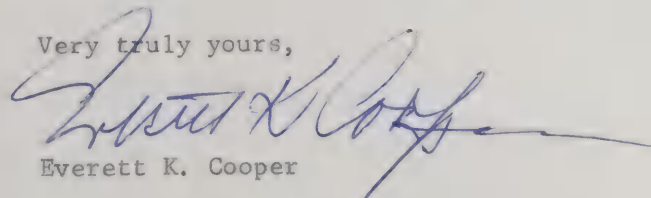 Very truly yours,
Everett K Cooper
Everett K. Cooper